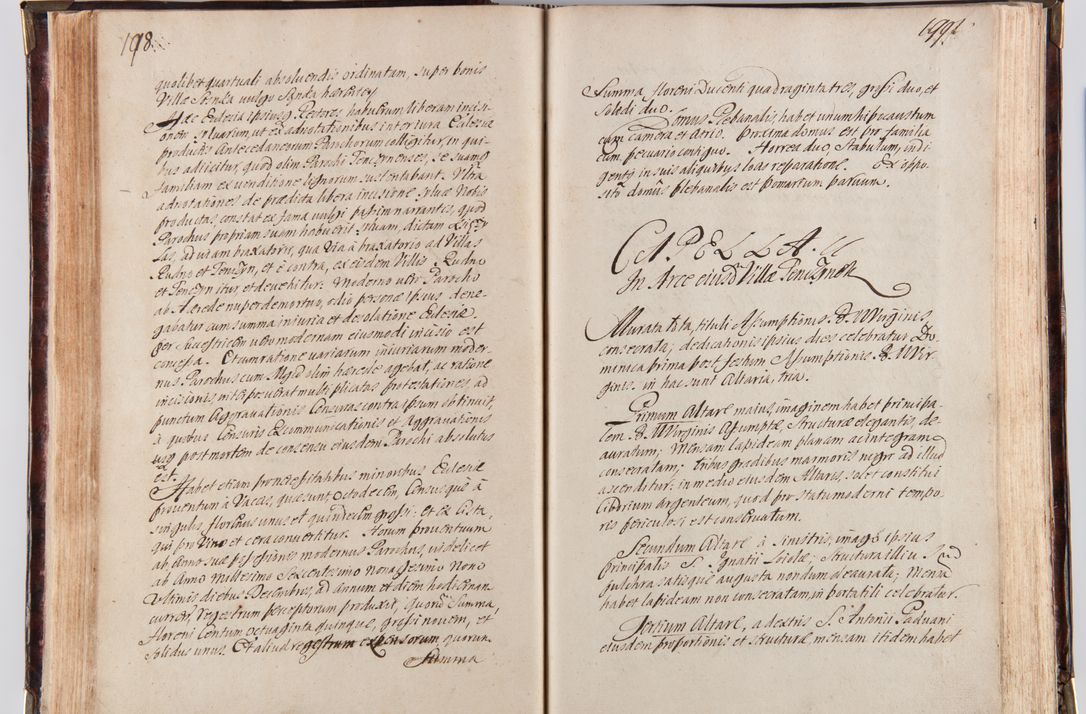 198.
qualibet quartuali absolvendis ordinatam, super bonis
Villæ Sanka vulgo Sanka hærere.
Hæc Ecclesia ipsiusq Rectores, habuerunt liberam incisi-
onem sylvarum, ut ex adnotationibus interiura Ecclesiæ
productis Antecedaneorum Parochorum colligitur, in qui-
bus allicitur, quod olim Parochi Tenczynenses, se suamq
familiam ex venditione lignorum sustentabant. Ultra
adnotationes de prædicta libera incisione sylvæ Nobis
productas constat ex fama vulgi passim narrantis, quod
Parochus propriam suam habuerit sylvam, dictam
las, ad viam braxatoris, qua via à braxatorio ad Villas
Rudno et Tenczyn, et è contra, ex eisdem Villis Rudno
et Tenczyn itur et devehitur: Moderno vero Parocho
ab Hærede nuper demortuo, odio personæ ipsius dene-
gabatur cum summa iniuria et desolatione Ecclesiæ.
per successricem vero modernam eiusmodi incisio est
concessa. Et cum ratione variarum iniuriarum moder-
nus Parochus cum Mgfcō olim hærede agebat, ac ratione
incisionis, interposuerat multiplicatas protestationes, ad
punctum Aggravationis Censuras contra ipsum obtinuit,
à quibus Censuris Excommunicationis et Aggravationis
usq post mortem de consensu eiusdem Parochi absolutus
est.
Habet etiam pro necessitatibus minoribus Ecclesiæ
proventum à Vaccis, quæ sunt octodecim, Census quæ à
singulis florenus unus et quindecim grossi: et ex Cista,
qui pro Vino et cera convertitur. Horum proventuum
ab Anno suæ possessiones modernus Parochus, videlicet
ab Anno Millesimo Sexcentesimo nonagesimo Nono
Ultimis diebus Decembris, ad annum et diem hodiernam
currens, Regestrum perceptorum produxit, quorum Summa,
floreni Centum octuaginta quinque, grossi novem, et
solidus unus. Et aliud regestrum expensorum quorum
Summa
199.
Summa, floreni Ducenti quadraginta tres, grossi duo, et
solidi duo.
Domus Plebanalis, habet unum hipocaustum
cum camera et atrio. Proxima domus est pro familia
cum pecuario contiguo. Horrea duo, Stabulum, indi-
gent, in suis aliquibus locis reparatione. Ex oppo-
sitō domus plebanalis est pomarium parvum.
CAPELLA
In Arce eiusd Villæ Tenczynen
Murata tota, tituli Assumptionis B. M Virginis,
consecrata, dedicationis ipsius dies celebratur Do-
minica prima post festum Assumptionis B. M Vir-
ginis. in hac sunt Altaria, tria.
Primum Altare maius, imaginem habet principa-
lem B. M Virginis Assumptæ, Structuræ elegantis, de-
auratum; Mensam lapideam planam ac integram
consecratam; tribus gradibus marmoris nigri ad illud
ascenditur. in medio eiusdem Altaris, solet constitui
Ciborium argenteum, quod pro statu moderni tempo
ris periculosi est conservatum.
Secundum Altare à sinistris, imago ipsius
principalis S. Ignatii Loiolæ, Structura illius
pulchra, satisque augusta nondum deaurata; Mensa
habet lapideam non consecratam, in portatili celebratur.
Tertium Altare, a dextris S. Antonii Paduani
eiusdem proportionis et structuræ mensam itidem habet